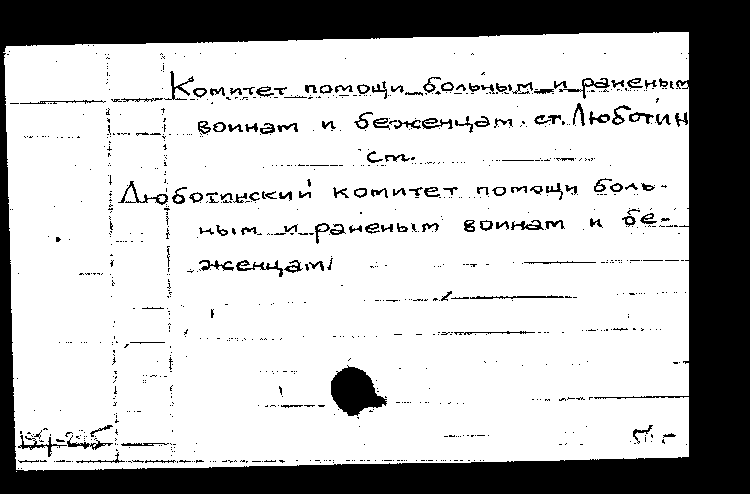 Комитет помощи больным и раненым
воинам и беженцам. ст. Люботин
см.
Люботинский комитет помощи боль-
ным и раненым воинам и бе-
женцам/